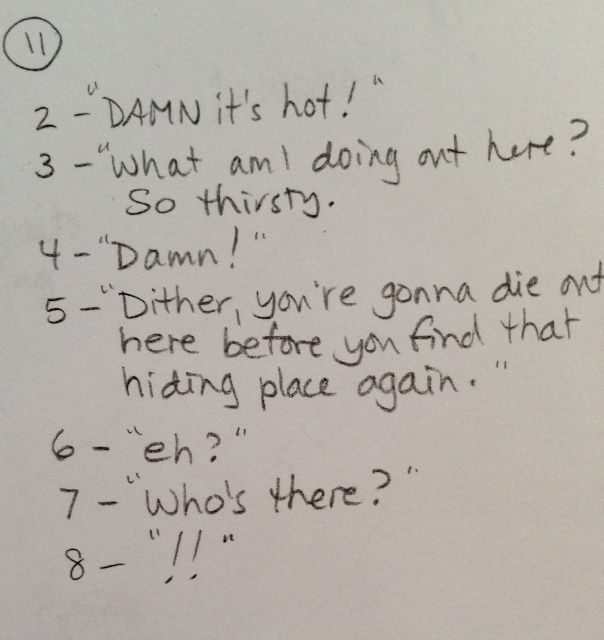 11
2 - "DAMN it's hot!"
3 - "What am I doing out here?
So thirsty.
4 - "Damn!"
5 - "Dither, you're gonna die out
here before you find that
hiding place again."
6 - "eh?"
7 - "Who's there?"
8 - "!!"